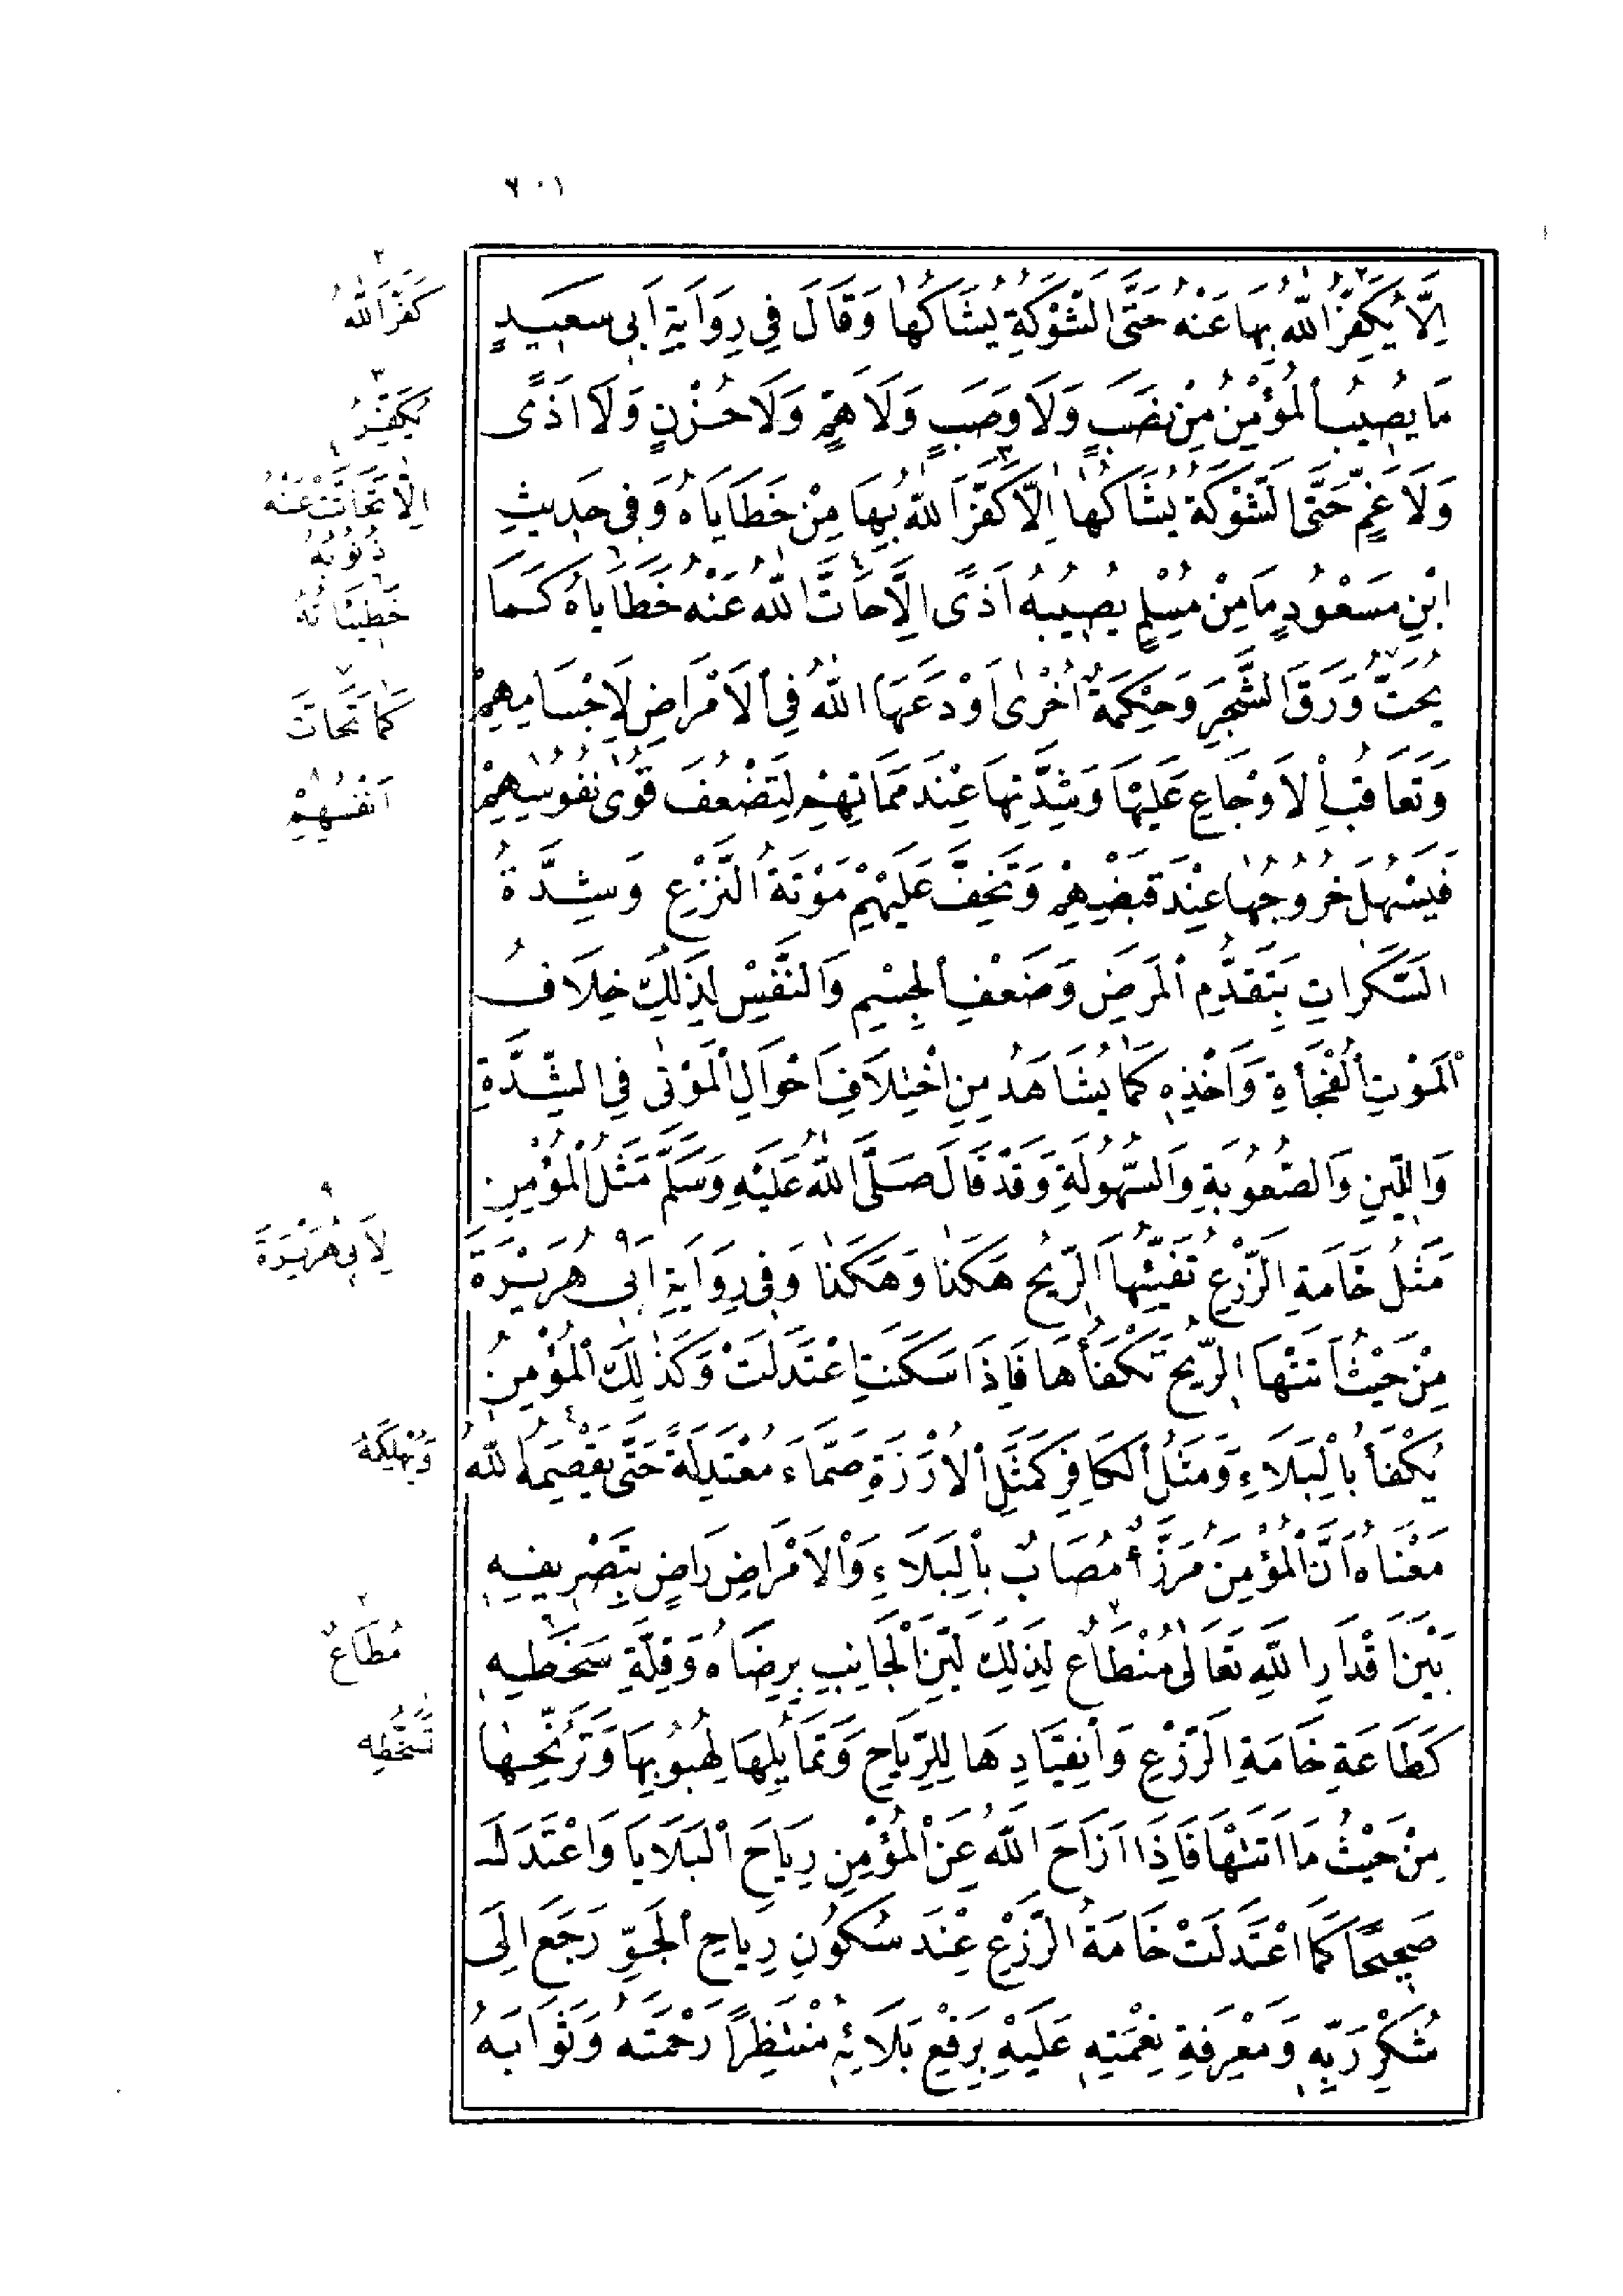 ٦٠١
اِلَّا يُكَفِّرُ اللّٰهُ بِهَا عَنْهُ حَتَّى الشَّوْكَةِ يُشَاكُهَا وَقَالَ فِي رِوَايَةِ اَبِي سَعِيدٍ
مَا يُصِيبُ الْمُؤْمِنَ مِنْ نَصَبٍ وَلَا وَصَبٍ وَلَا هَمٍّ وَلَا حُزْنٍ وَلَا اَذًى
وَلَا غَمٍّ حَتَّى الشَّوْكَةُ يُشَاكُهَا اِلَّا كَفَّرَ اللّٰهُ بِهَا مِنْ خَطَايَاهُ وَفِي حَدِيثِ
ابْنِ مَسْعُودٍ مَا مِنْ مُسْلِمٍ يُصِيبُهُ اَذًى اِلَّا حَاتَّ اللّٰهُ عَنْهُ خَطَايَاهُ كَمَا
يُحَتُّ وَرَقُ الشَّجَرِ وَحِكْمَةٌ اُخْرٰى اَوْدَعَهَا اللّٰهُ فِي الْاَمْرَاضِ لِاَجْسَامِهِمْ
وَتَعَاقُبِ الْاَوْجَاعِ عَلَيْهَا وَشِدَّتِهَا عِنْدَ مَمَاتِهِمْ لِتَضْعُفَ قُوٰى نُفُوسِهِمْ
فَيَسْهُلَ خُرُوجُهَا عِنْدَ قَبْضِهِمْ وَتَخِفَّ عَلَيْهِمْ مَوْتَةُ النَّزْعِ وَشِدَّةُ
السَّكَرَاتِ بِتَقَدُّمِ الْمَرَضِ وَضَعْفِ الْجِسْمِ وَالنَّفْسِ لِذٰلِكَ خِلَافُ
الْمَوْتِ الْفُجْأَةِ وَاَخْذِهِ كَمَا يُشَاهَدُ مِنِ اخْتِلَافِ اَحْوَالِ الْمَوْتٰى فِي الشِّدَّةِ
وَاللِّينِ وَالصُّعُوبَةِ وَالسُّهُولَةِ وَقَدْ قَالَ صَلَّى اللّٰهُ عَلَيْهِ وَسَلَّمَ مَثَلُ الْمُؤْمِنِ
مَثَلُ خَامَةِ الزَّرْعِ تُفَيِّئُهَا الرِّيحُ هٰكَذَا وَهٰكَذَا وَفِي رِوَايَةِ اَبِي هُرَيْرَةَ
مِنْ حَيْثُ اَتَتْهَا الرِّيحُ تَكْفَأُهَا فَاِذَا سَكَنَتِ اعْتَدَلَتْ وَكَذٰلِكَ الْمُؤْمِنُ
يُكْفَأُ بِالْبَلَاءِ وَمَثَلُ الْكَافِرِ كَمَثَلِ الْاَرْزَةِ صَمَّاءَ مُعْتَدِلَةً حَتَّى يَقْصِمَهُ اللّٰهُ
مَعْنَاهُ اَنَّ الْمُؤْمِنَ مُرَزَّأٌ مُصَابٌ بِالْبَلَاءِ وَالْاَمْرَاضِ رَاضٍ بِتَصْرِيفِهِ
بَيْنَ اَقْدَارِ اللّٰهِ تَعَالٰى مُنْطَاعٌ لِذٰلِكَ لَيِّنُ الْجَانِبِ بِرِضَاهُ وَقِلَّةِ سَخَطِهِ
كَطَاعَةِ خَامَةِ الزَّرْعِ وَانْقِيَادِهَا لِلرِّيَاحِ وَتَمَايُلِهَا لِهُبُوبِهَا وَتَرَنُّحِهَا
مِنْ حَيْثُ مَا اَتَتْهَا فَاِذَا اَزَاحَ اللّٰهُ عَنِ الْمُؤْمِنِ رِيَاحَ الْبَلَايَا وَاعْتَدَلَ
صَحِيحًا كَمَا اعْتَدَلَتْ خَامَةُ الزَّرْعِ عِنْدَ سُكُونِ رِيَاحِ الْجَوِّ رَجَعَ اِلَى
شُكْرِ رَبِّهِ وَمَعْرِفَةِ نِعْمَتِهِ عَلَيْهِ بِرَفْعِ بَلَائِهِ مُنْتَظِرًا رَحْمَتَهُ وَثَوَابَهُ
٢
كَفَّرَ اللّٰهُ
٣
يُكَفِّرُ
٤
اِلَّا تَحَاتَّتْ عَنْهُ
ذُنُوبُهُ
٦
خَطِيئَاتُهُ
٧
كَمَا تَحَاتَّ
٨
اَنْفُسِهِمْ
٩
لِاَبِي هُرَيْرَةَ
وَيُهْلِكَهُ
٢
مُطَاعٌ
تَسَخُّطِهِ